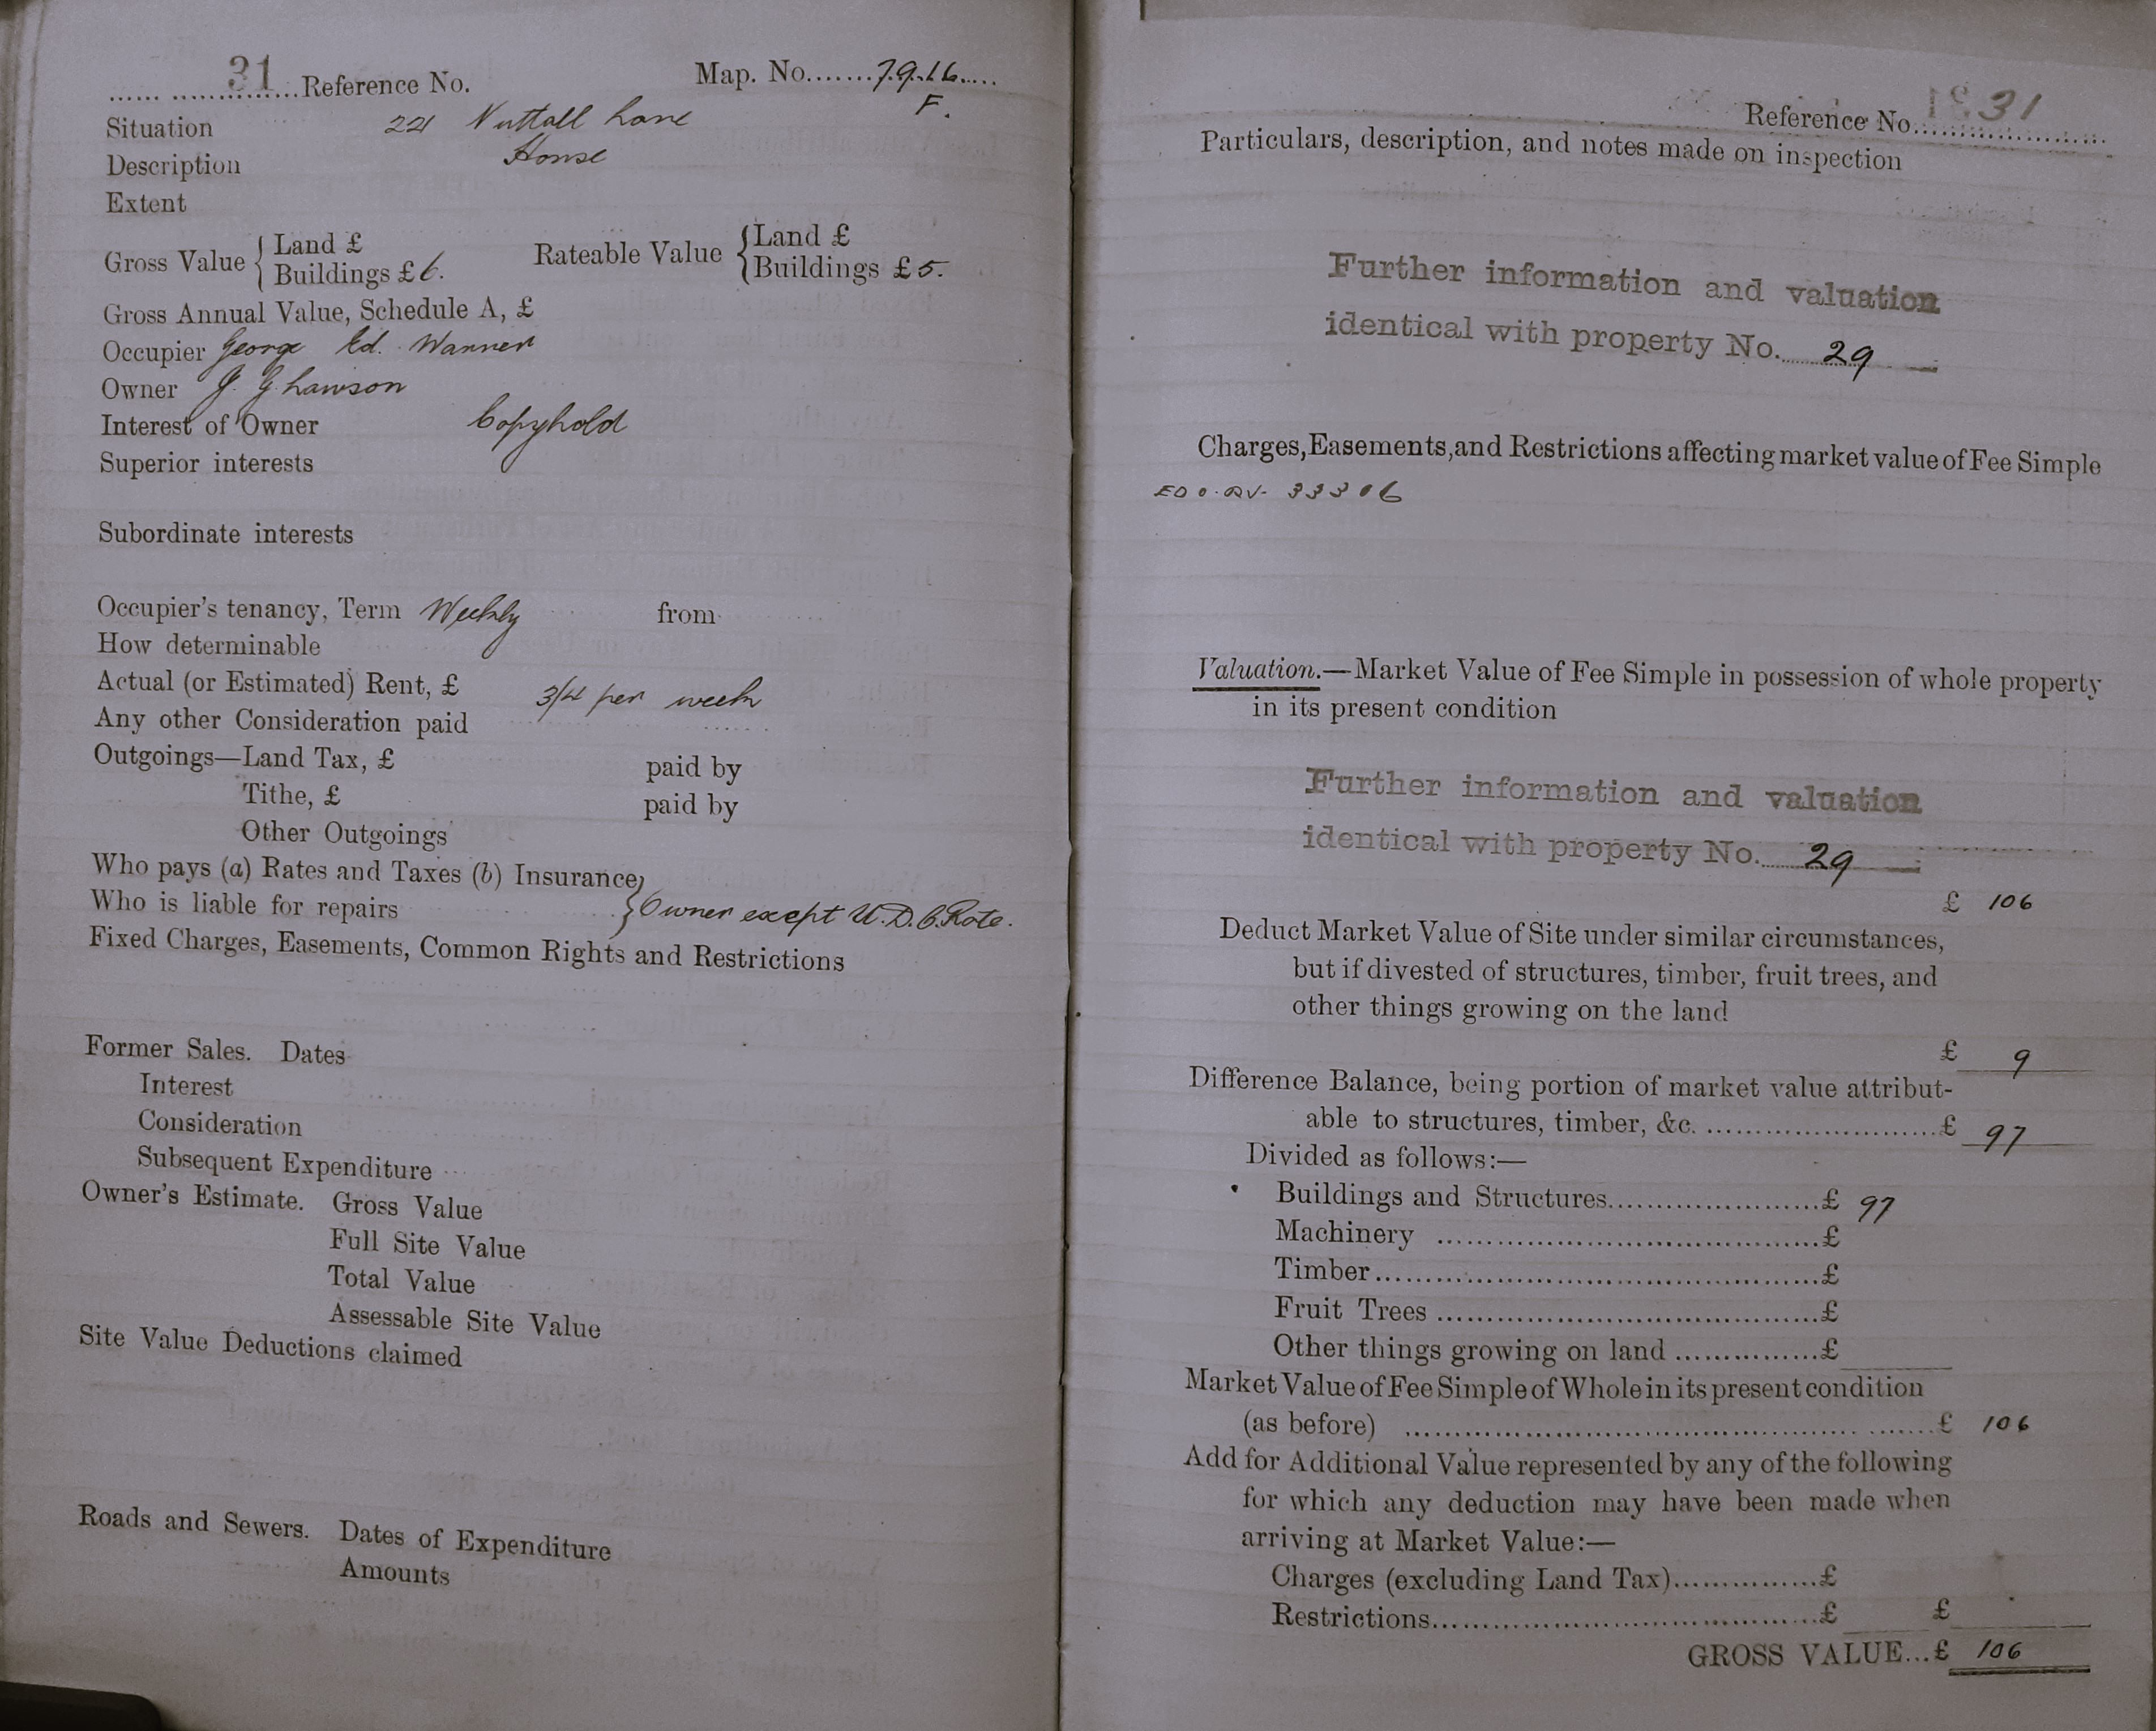 31 Reference No. Map. No. 79.16
F.
Situation 221 Nuttall Lane
Description House
Extent
Gross Value { Land £
Buildings £ 6. Rateable Value { Land £
Buildings £ 5.
Gross Annual Value, Schedule A, £
Occupier George Ed. Warner
Owner J. G. Lawson
Interest of Owner Copyhold
Superior interests
Subordinate interests
Occupier's tenancy, Term Weekly from
How determinable
Actual (or Estimated) Rent, £ 3/4 per week
Any other Consideration paid
Outgoings—Land Tax, £ paid by
Tithe, £ paid by
Other Outgoings
Who pays (a) Rates and Taxes (b) Insurance }
Who is liable for repairs } Owner except U.D.C. Rate.
Fixed Charges, Easements, Common Rights and Restrictions
Former Sales. Dates
Interest
Consideration
Subsequent Expenditure
Owner's Estimate. Gross Value
Full Site Value
Total Value
Assessable Site Value
Site Value Deductions claimed
Roads and Sewers. Dates of Expenditure
Amounts
Reference No. 31
Particulars, description, and notes made on inspection
Further information and valuation
identical with property No. 29
Charges, Easements, and Restrictions affecting market value of Fee Simple
33306
Valuation.—Market Value of Fee Simple in possession of whole property
in its present condition
Further information and valuation
identical with property No. 29
£ 106
Deduct Market Value of Site under similar circumstances,
but if divested of structures, timber, fruit trees, and
other things growing on the land
£ 9
Difference Balance, being portion of market value attribut-
able to structures, timber, &c. £ 97
Divided as follows:—
Buildings and Structures £ 97
Machinery £
Timber £
Fruit Trees £
Other things growing on land £
Market Value of Fee Simple of Whole in its present condition
(as before) £ 106
Add for Additional Value represented by any of the following
for which any deduction may have been made when
arriving at Market Value:—
Charges (excluding Land Tax) £
Restrictions £ £
GROSS VALUE... £ 106